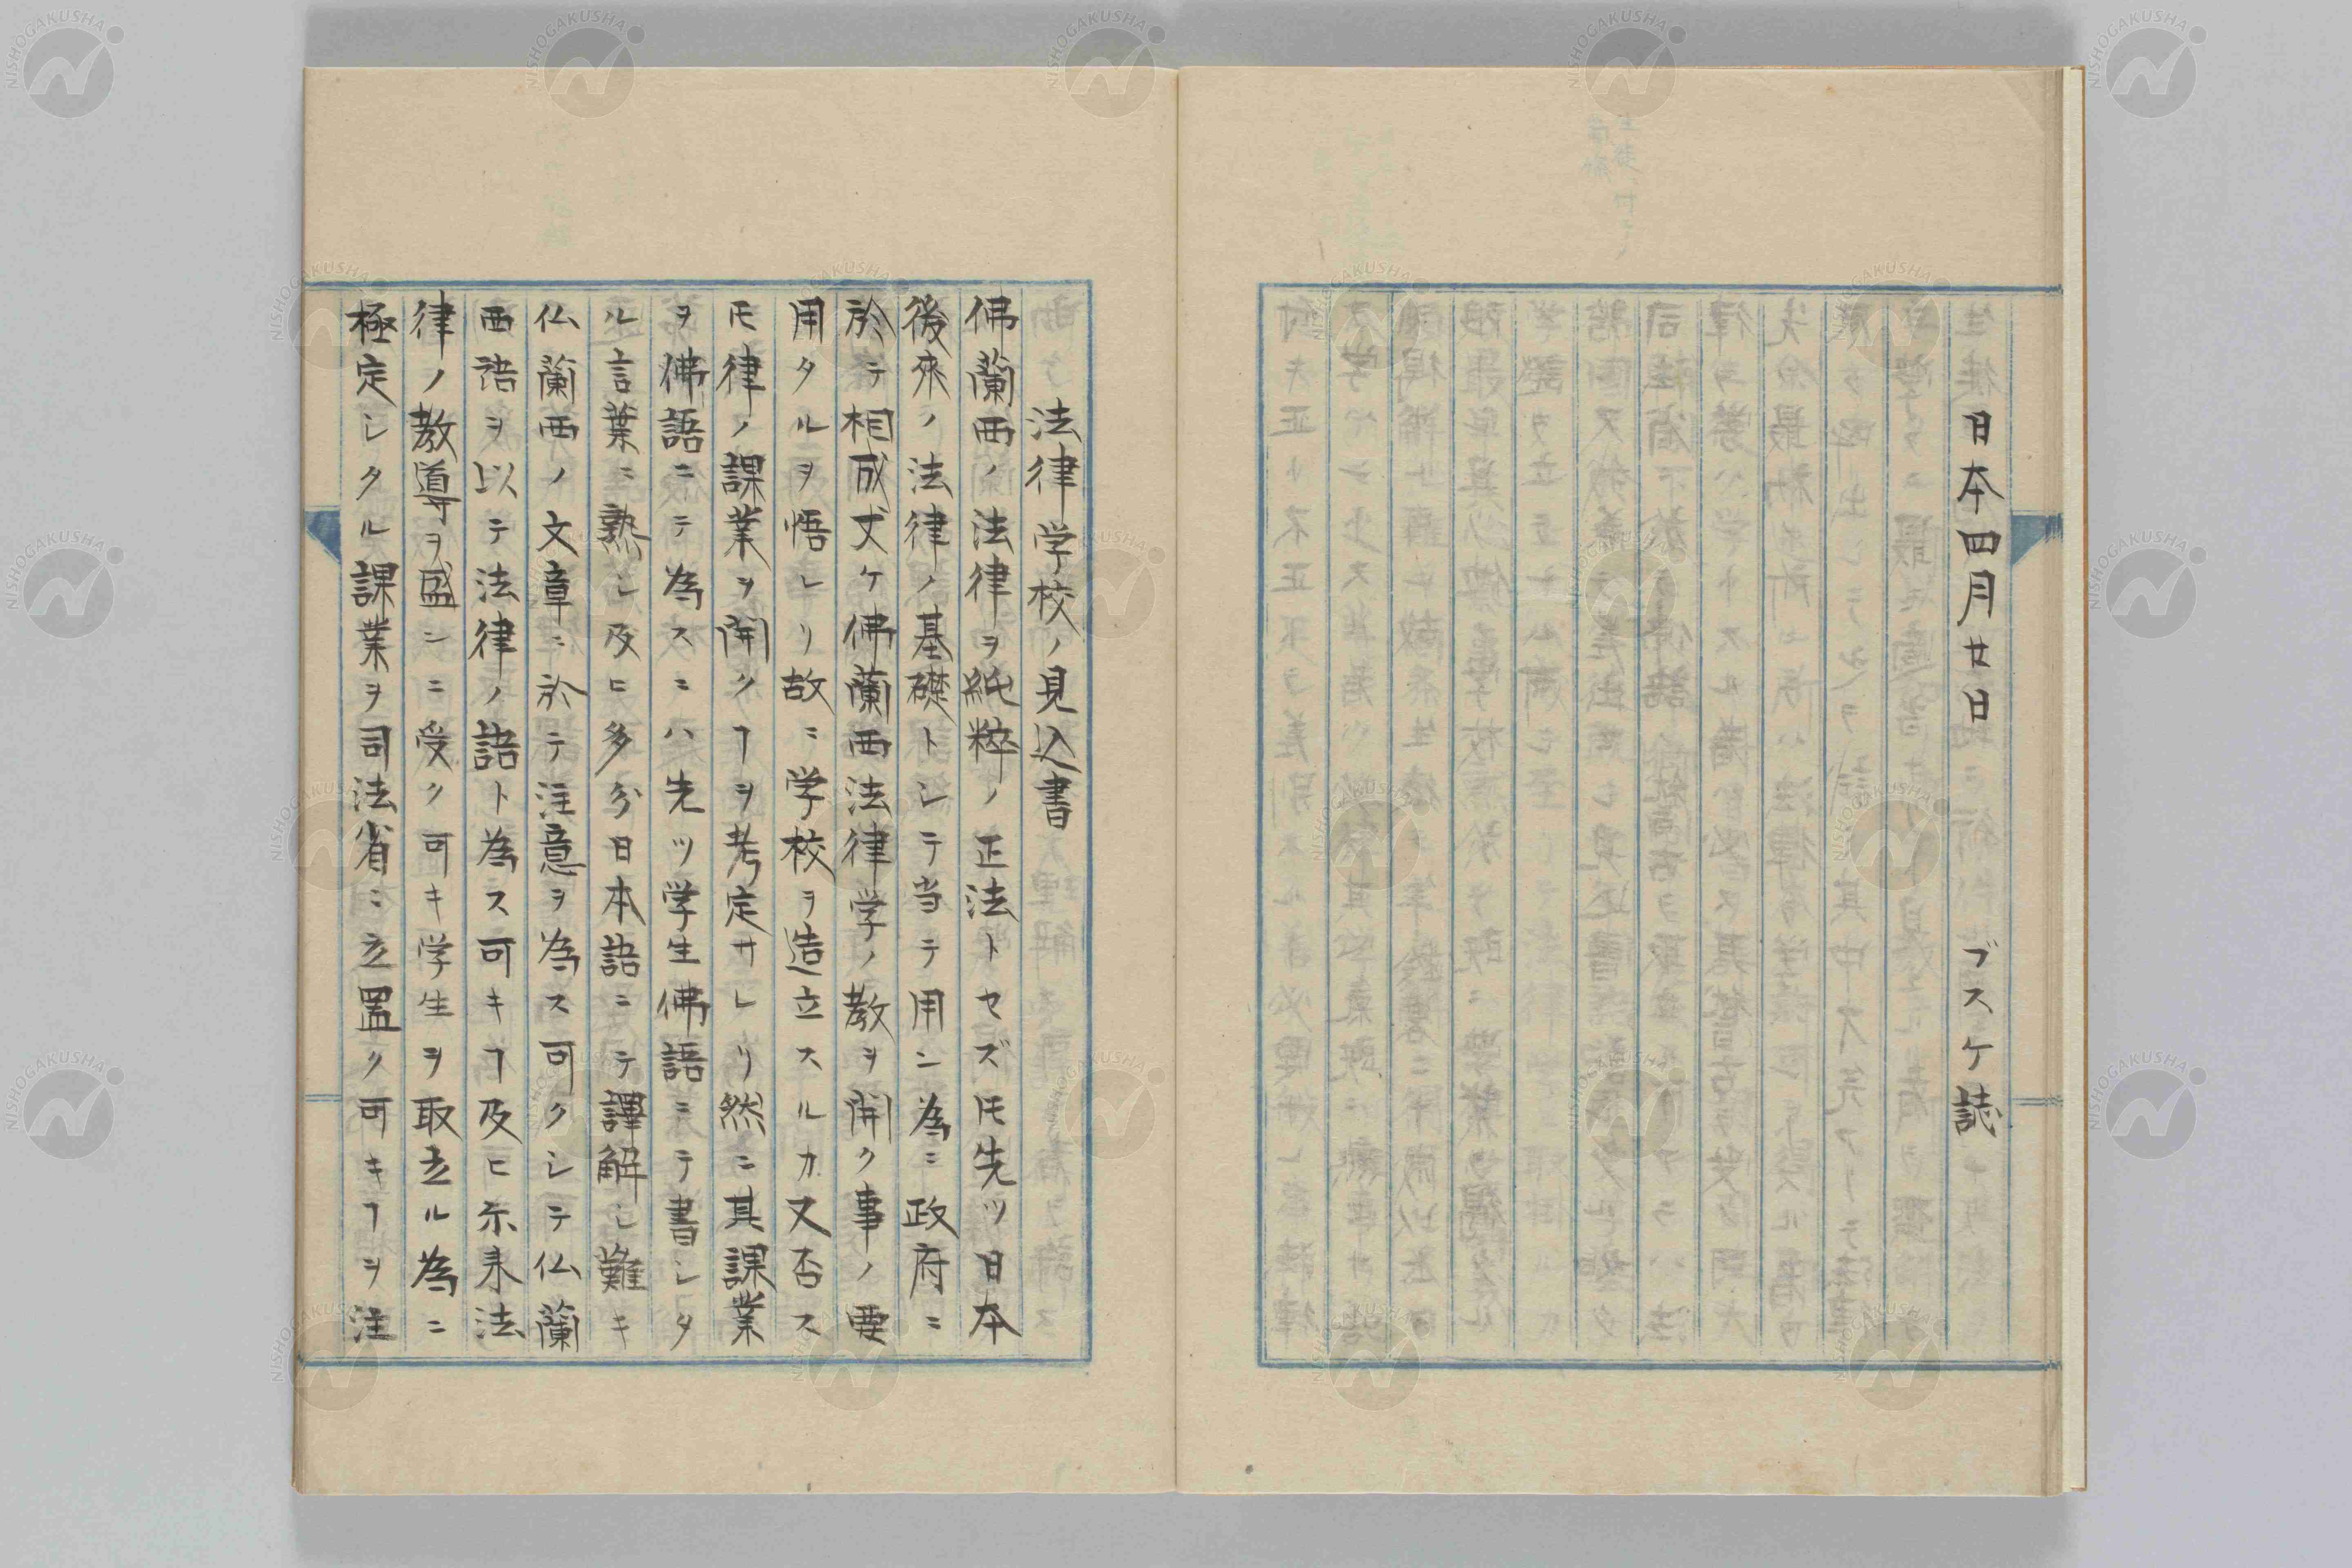 日本四月廿日　ブスケ誌
法律学校ノ見込書
佛蘭西ノ法律ヲ純粋ノ正法トセズ𪜈先ツ日本
後来ノ法律ノ基礎トシテ当テ用ン為ニ政府ニ
於テ相成丈ケ佛蘭西法律学ノ教ヲ開ク事ノ要
用タルヲ悟レリ故ニ学校ヲ造立スルカ又否ス
𪜈律ノ課業ヲ開クヿヲ考定サレリ然ニ其課業
ヲ佛語ニテ為スニハ先ツ学生佛語ニテ書シタ
ル言葉ニ熟シ及ヒ多分日本語ニテ譯解シ難キ
仏蘭西ノ文章ニ於テ注意ヲ為ス可クシテ仏蘭
西語ヲ以テ法律ノ語ト為ス可キヿ及ヒ尓来法
律ノ教導ヲ盛ンニ受ク可キ学生ヲ取立ル為ニ
極定シタル課業ヲ司法省ニ立置ク可キヿヲ注
NISHOGAKUSHA